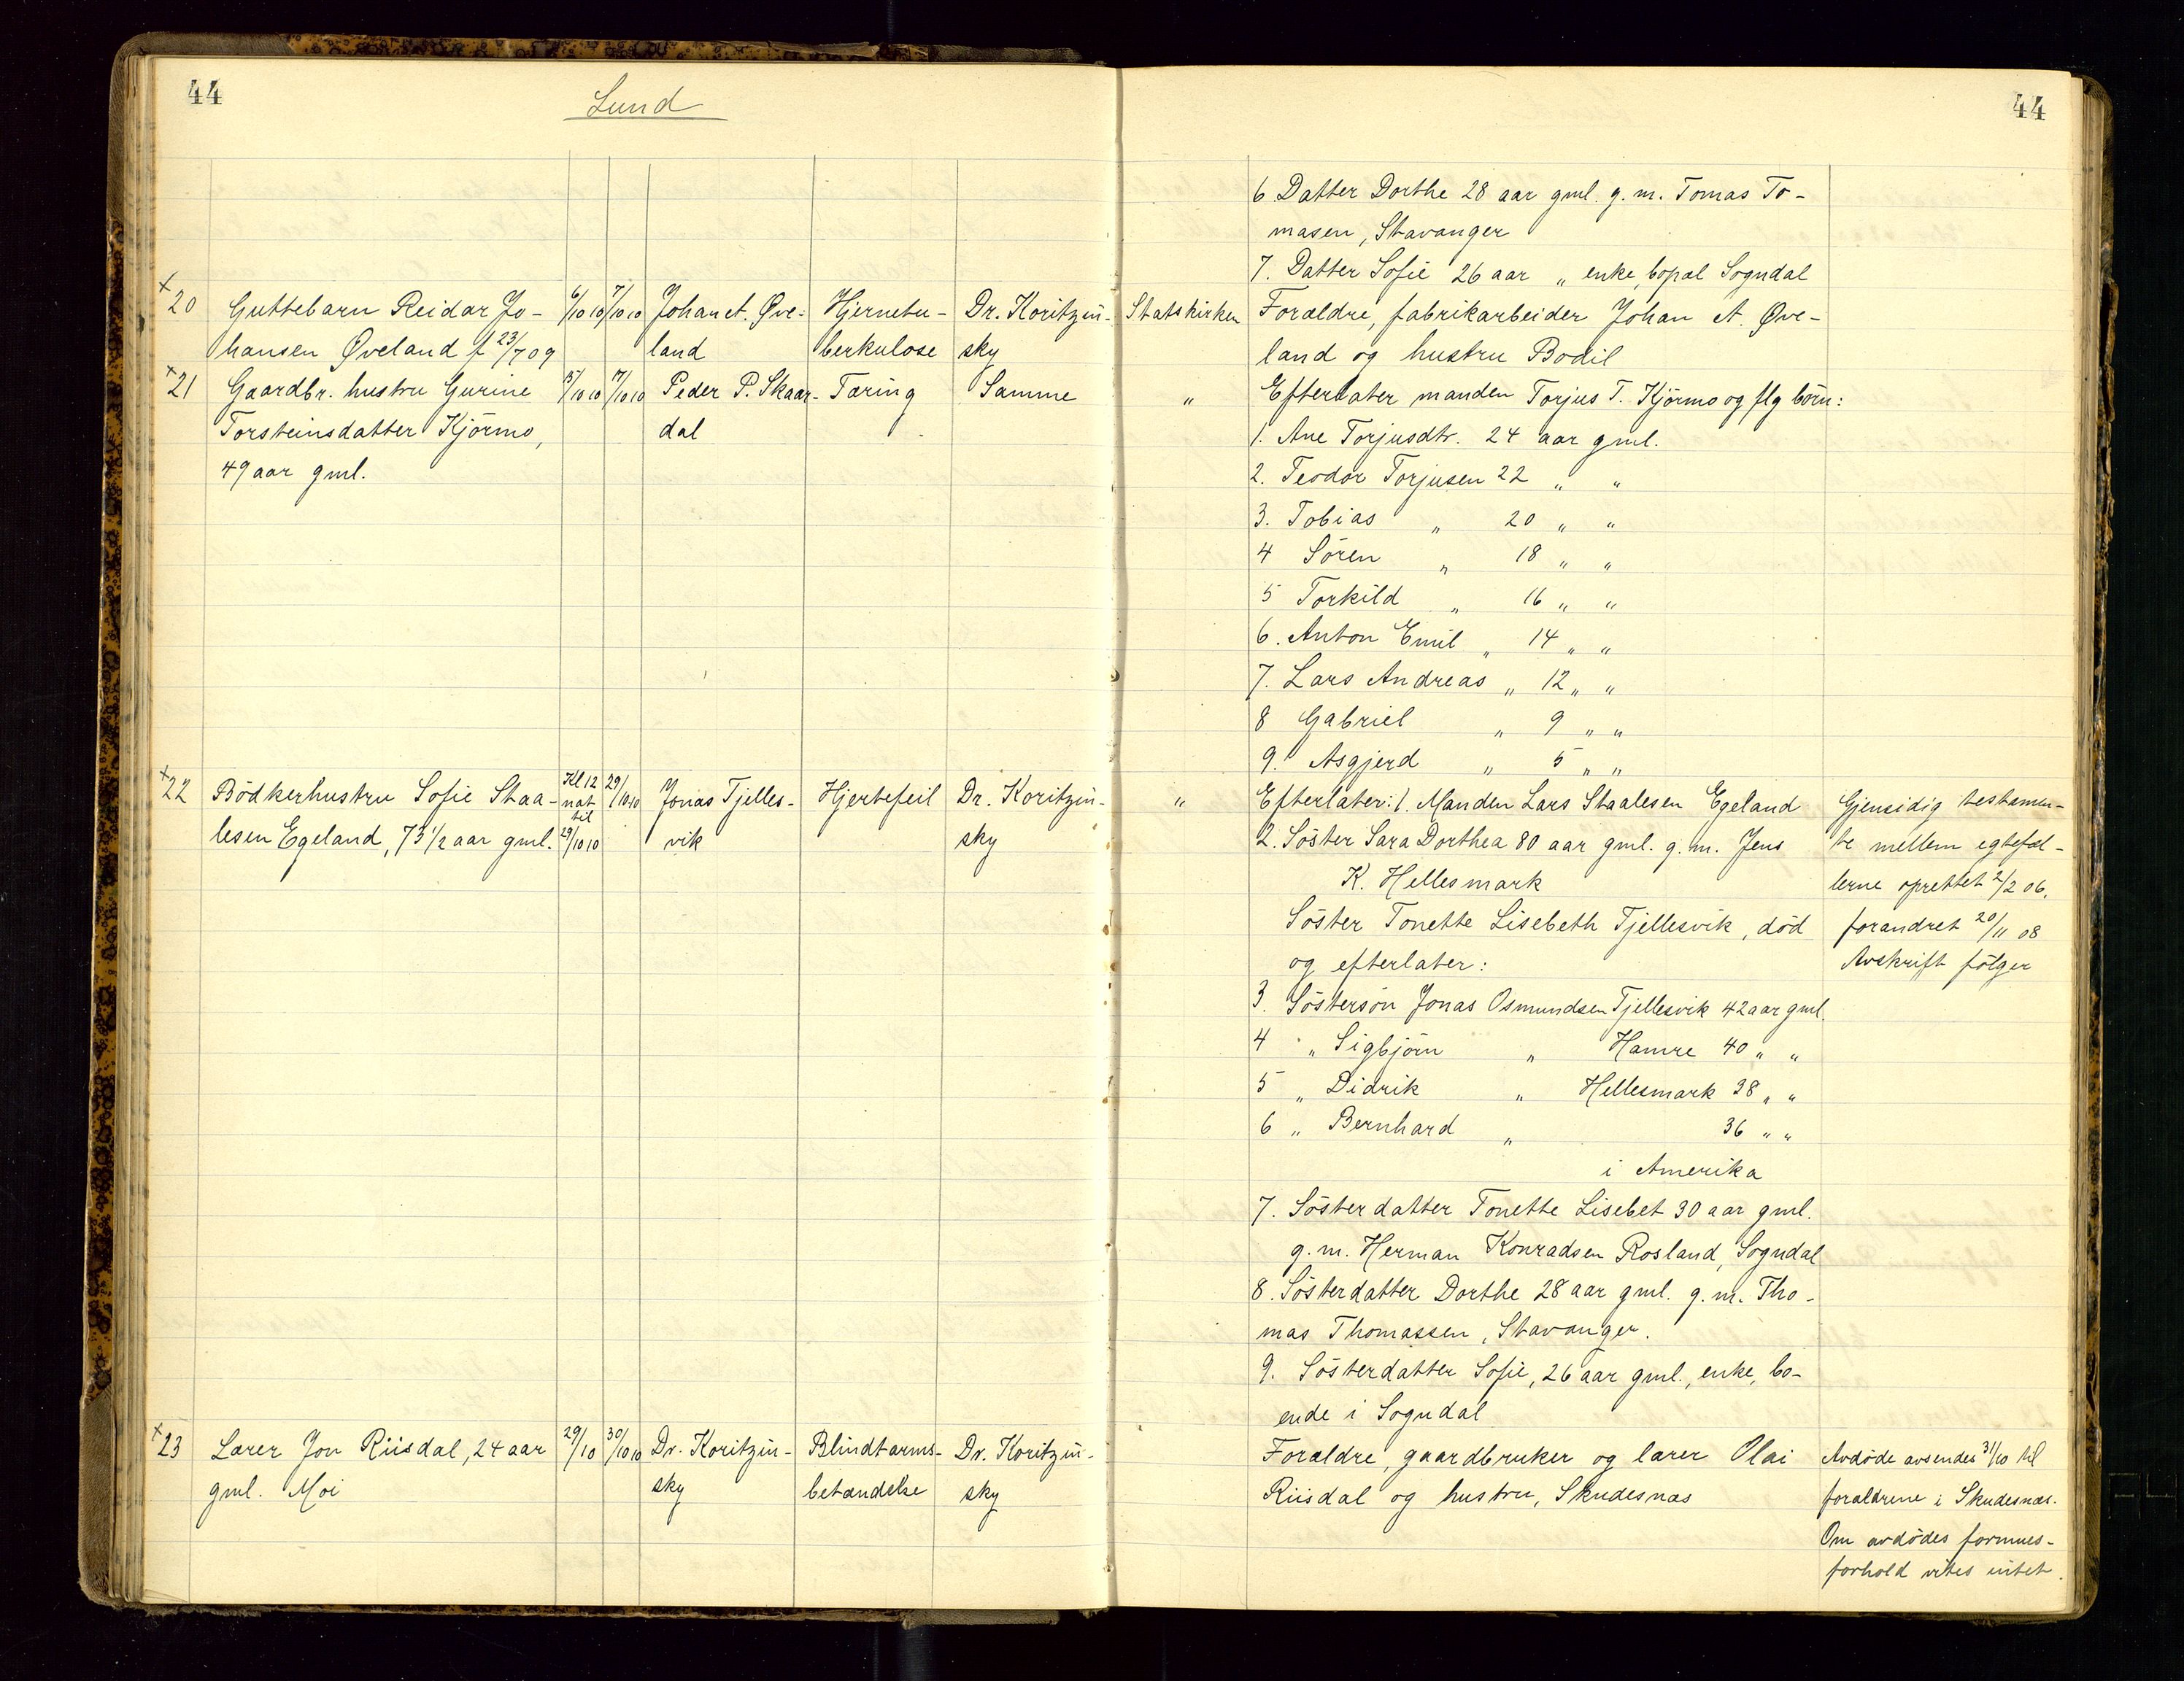 44
Lund
44
6. Datter Dorthe 28 aar gml. g. m. Tomas To-
masen, Stavanger
7. Datter Sofie 26 aar " enke, bopæl Sogndal
+20 Guttebarn Reidar Jo- 6/10 10 7/10 10 Johan A. Øve- Hjernetu- Dr. Koritzin- Statskirken Forældre, fabrikarbeider Johan A. Øve-
hansen Øveland f 23/7 09 land berkulose sky land og hustru Bodil
+21 Gaardbr. hustru Gurine 5/10 10 7/10 10 Peder P. Skaar- Tæring Samme " Efterlater manden Torjus T. Kjörmo og flg börn:
Torsteinsdatter Kjörmo, dal 1. Ane Torjusdtr. 24 aar gml.
49 aar gml. 2. Teodor Torjusen 22 " "
3. Tobias " 20 " "
4 Sören " 18 " "
5 Torkild " 16 " "
6. Anton Emil " 14 " "
7. Lars Andreas " 12 " "
8 Gabriel " 9 " "
9. Asgjerd " 5 " "
+22 Bödkerhustru Sofie Staa- Kl 12 nat til 29/10 10 29/10 10 Jonas Tjelles- Hjertefeil Dr. Koritzin- " Efterlater: 1. Manden Lars Staalesen Egeland Gjensidig testamen-
lesen Egeland, 73 1/2 aar gml. vik sky 2. Söster Sara Dorthea 80 aar gml. g. m. Jens te mellem egtefæl-
K. Hellesmark lerne oprettet 2/2 06,
Söster Tonette Lisebeth Tjellesvik, död forandret 20/11 08
og efterlater: Avskrift fölger
3. Söstersön Jonas Osmundsen Tjellesvik 42 aar gml.
4 " Sigbjörn " Hamre 40 " "
5 " Didrik " Hellesmark 38 " "
6 " Bernhard " 36 " "
i Amerika
7. Sösterdatter Tonette Lisebet 30 aar gml.
g. m. Herman Konradsen Rosland, Sogndal
8. Sösterdatter Dorthe 28 aar gml. g. m. Tho-
mas Thomassen, Stavanger.
9. Sösterdatter Sofie, 26 aar gml., enke, bo-
ende i Sogndal
+23 Lærer Jon Riisdal, 24 aar 29/10 30/10 10 Dr. Koritzin- Blindtarms- Dr. Koritzin- Forældre, gaardbruker og lærer Olai Avdöde avsendes 31/10 til
gml. Moi sky betændelse sky Riisdal og hustru, Skudesnæs forældrene i Skudesnæs.
Om avdödes formues-
forhold vites intet.